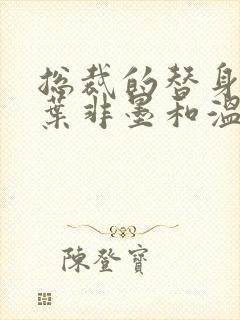 总裁的替身
葉非墨和溫
陳登寶